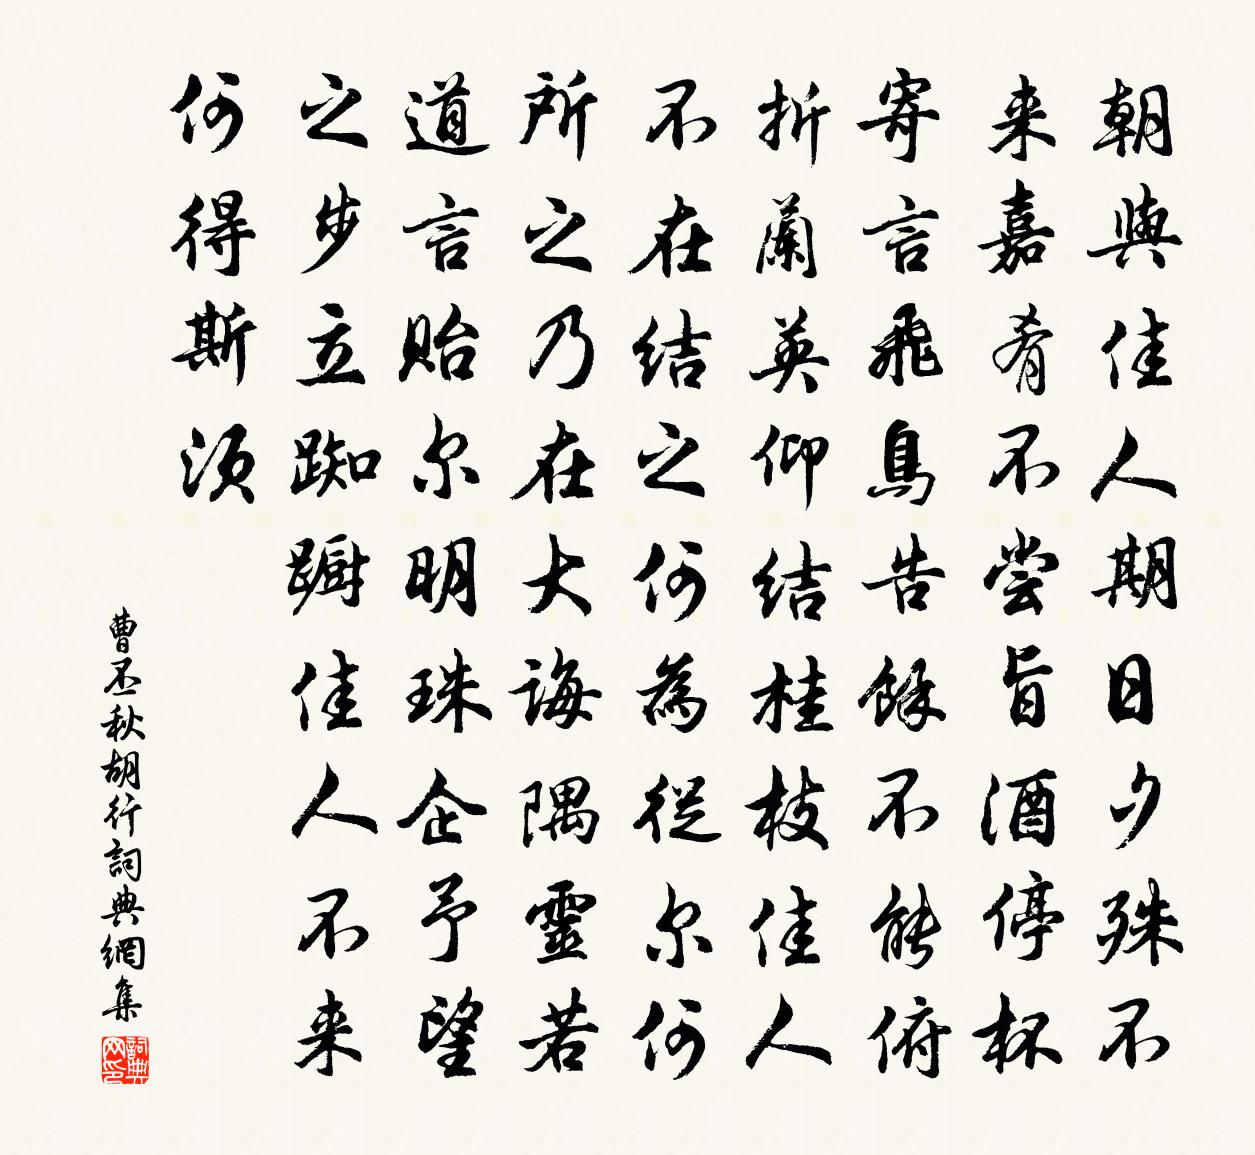 朝與佳人期日夕殊不
来嘉肴不尝旨酒停杯
寄言飛鳥告餘不能俯
折蘭英仰結桂枝佳人
不在結之何為從尔何
所之乃在大誨隅靈若
道言貽尔明珠企予望
之步立踟躕佳人不来
何得斯湏
曹丕秋胡行詞典網集
詞典网印